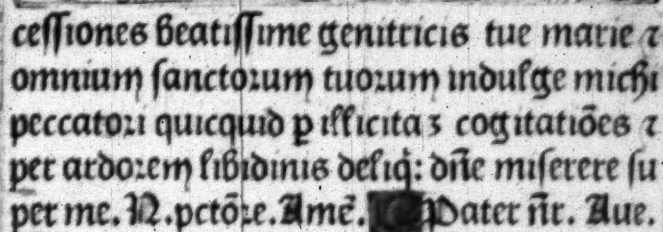 ceſſiones beatiſſime genitricis tue marie ⁊
omnium ſanctoꝛum tuoꝛum indulge michi
peccatoꝛi quicquid ꝑ illicitaꝫ cogitatiões ⁊
per ardoꝛem libidinis deliq̄: dñe miſerere ſu
per me. N. pctõꝛe. Amẽ. Pater ñr. Aue.